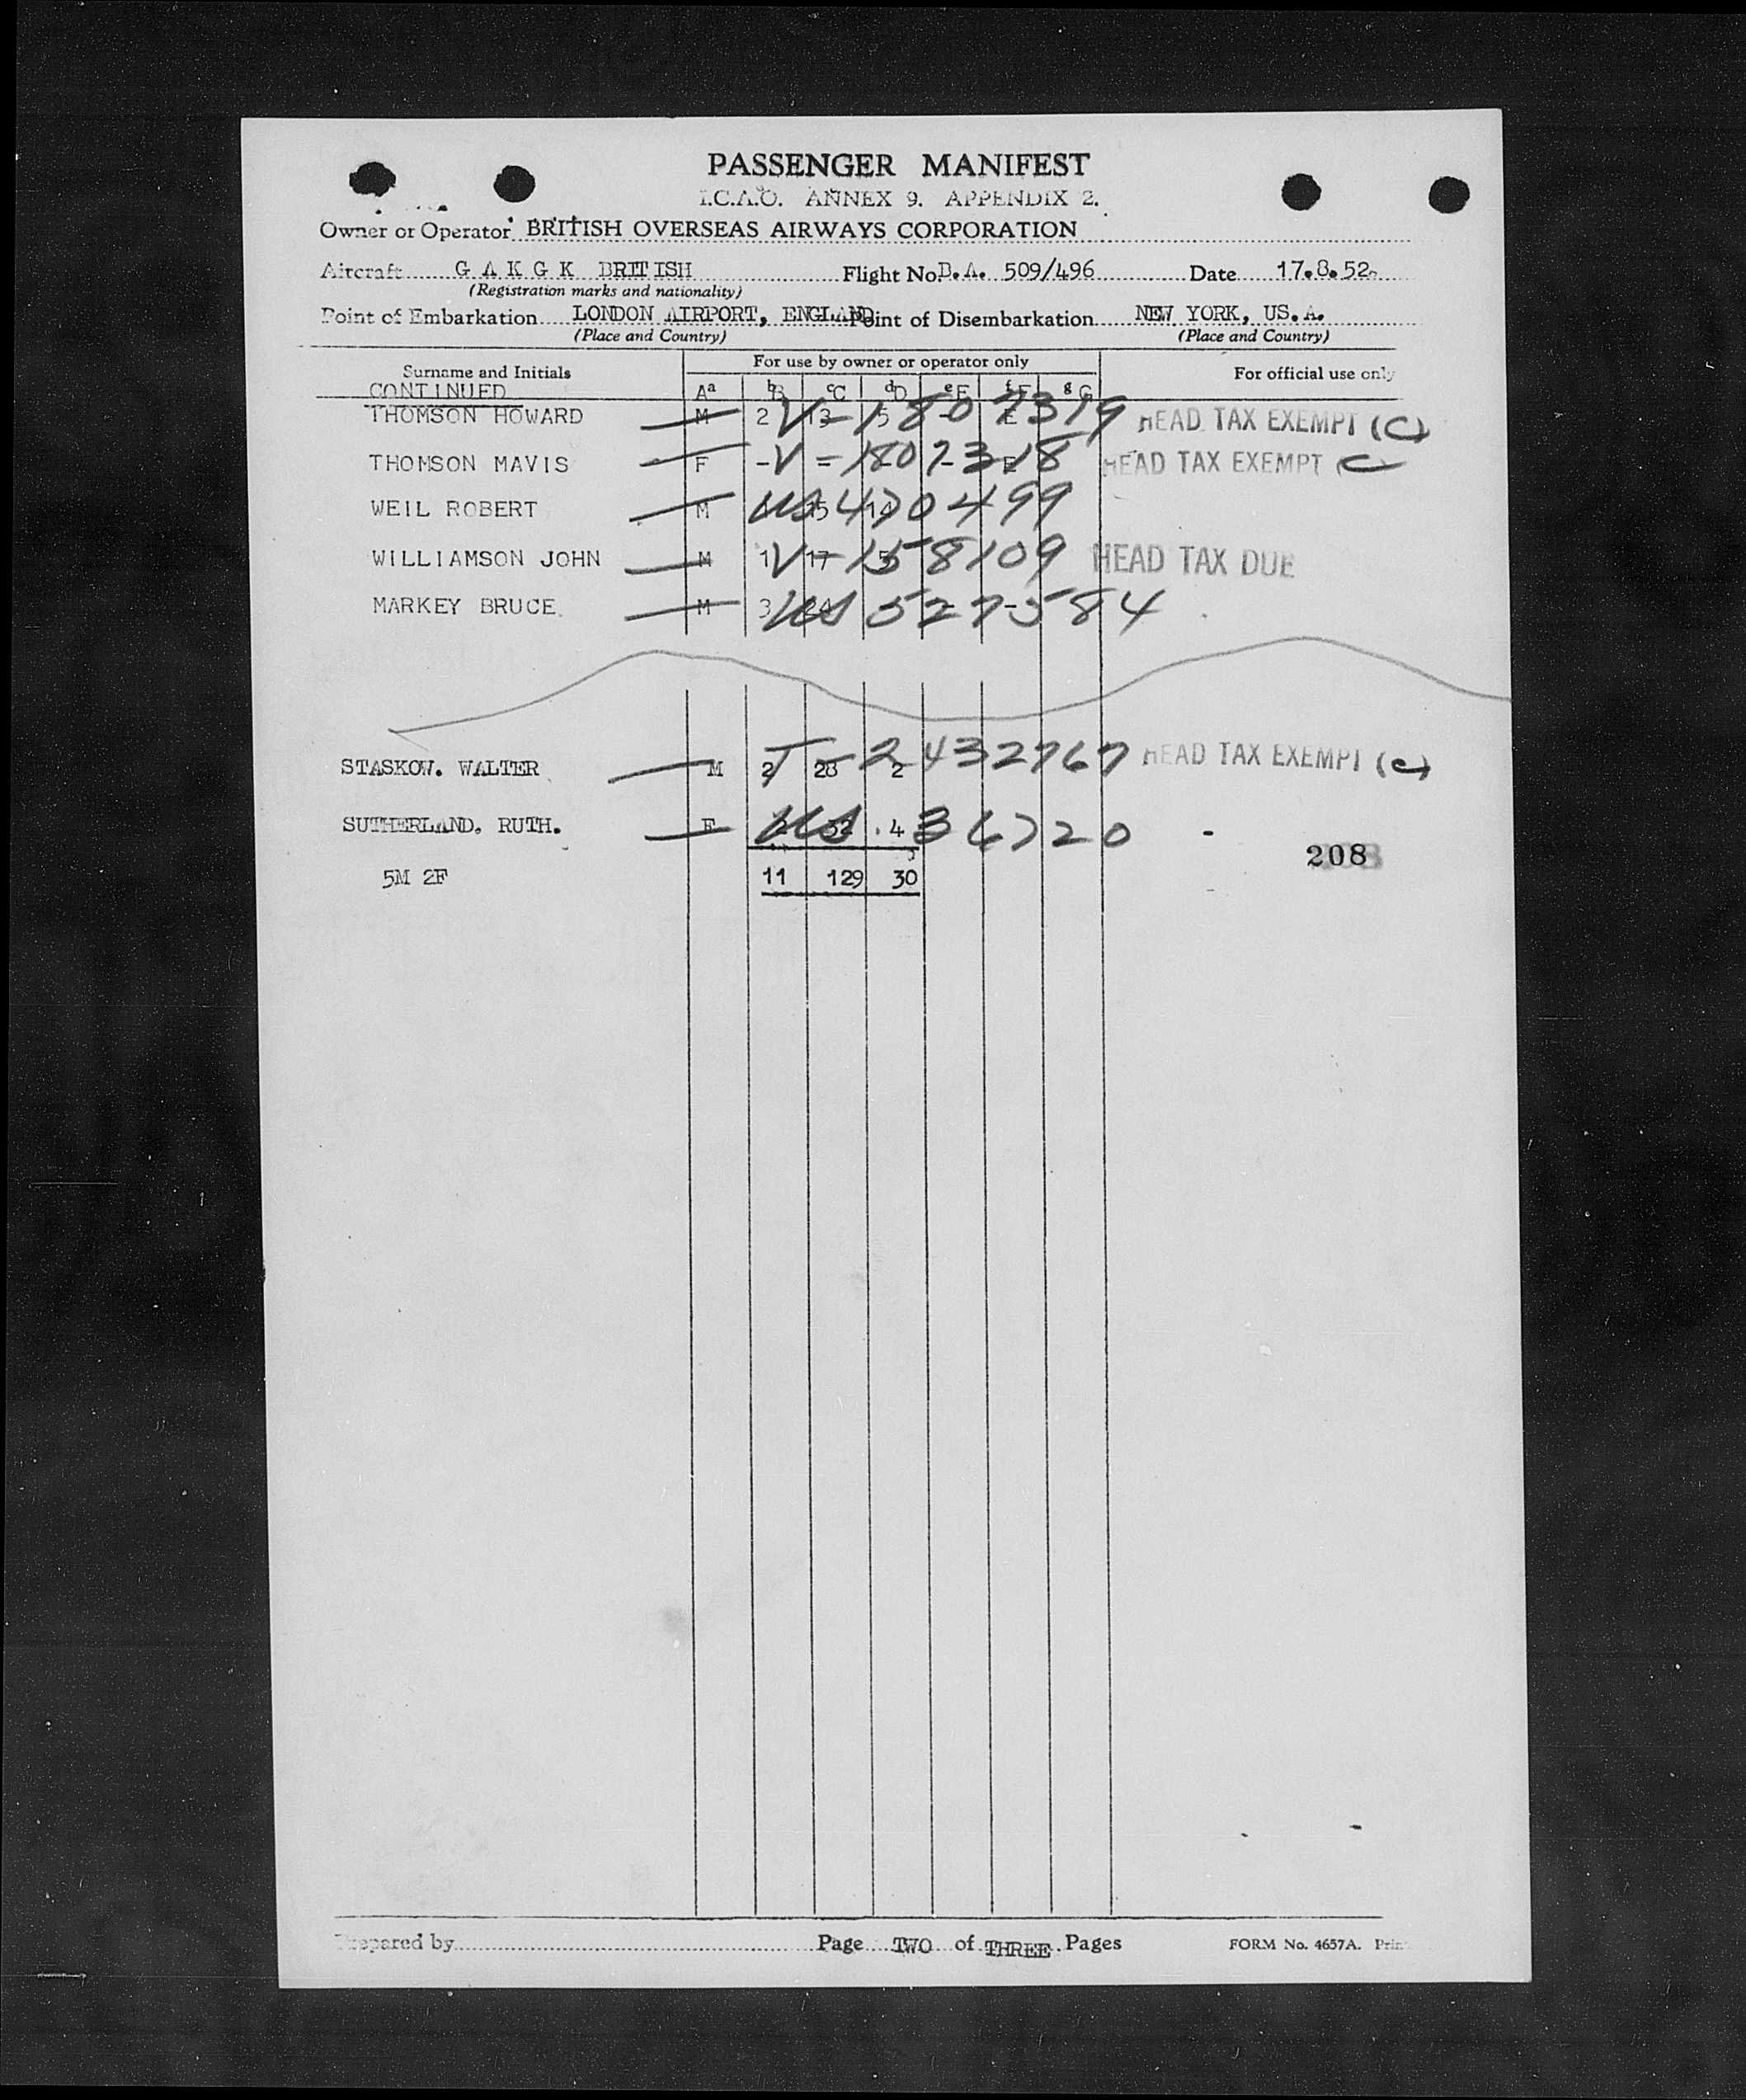 PASSENGER MANIFEST
I.C.A.O. ANNEX 9. APPENDIX 2.
Owner or Operator BRITISH OVERSEAS AIRWAYS CORPORATION
Aircraft G A K G K BRITISH Flight No. B.A. 509/496 Date 17.8.52.
(Registration marks and nationality)
Point of Embarkation LONDON AIRPORT, ENGLAND Point of Disembarkation NEW YORK, US.A.
(Place and Country) (Place and Country)
Surname and Initials For use by owner or operator only For official use only
CONTINUED Aa bB cC dD eE fF gG
THOMSON HOWARD M 2 V-1807319 HEAD TAX EXEMPT (C)
THOMSON MAVIS F V-1807318 HEAD TAX EXEMPT C
WEIL ROBERT M US 470499
WILLIAMSON JOHN M 1 17 V-158109 HEAD TAX DUE
MARKEY BRUCE M 3 US 527584
STASKOW. WALTER M 2 28 2 T-2432767 HEAD TAX EXEMPT (C)
SUTHERLAND. RUTH. F US 32 4 36720
208
5M 2F 11 129 30
Prepared by Page TWO of THREE Pages FORM No. 4657A.